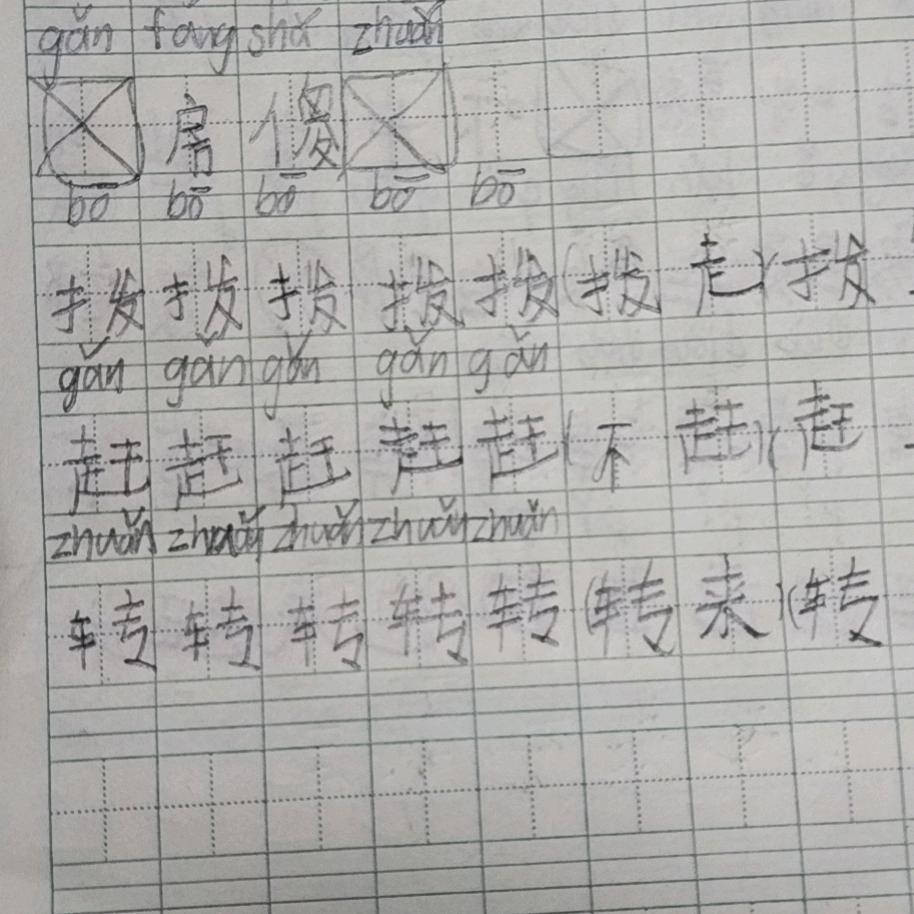 gǎn fáng shǎ zhuǎn
房 傻
bō bō bō bō bō
拨 拨 拨 拨 拨 (拨 走)(拨
gǎn gǎn gǎn gǎn gǎn
赶 赶 赶 赶 赶 (不 赶)(赶
zhuǎn zhuǎn zhuǎn zhuǎn zhuǎn
转 转 转 转 转 (转 来)(转